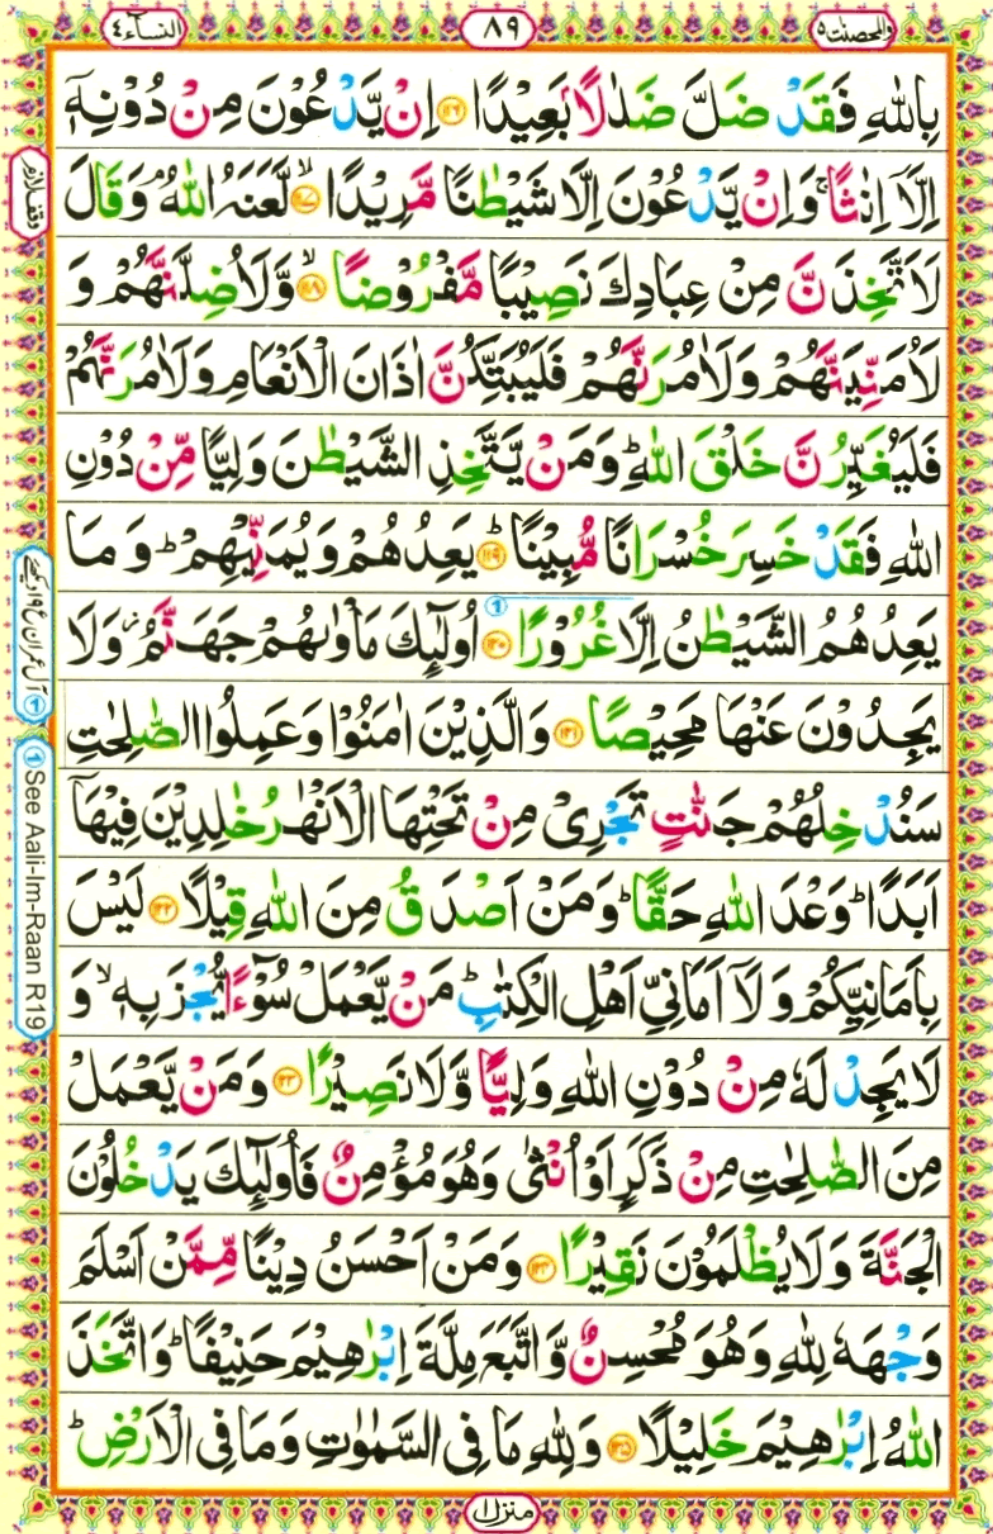 النسآء ٤
٨٩
والمحصنت ٥
بِاللّٰهِ فَقَدْ ضَلَّ ضَلٰلًاۢ بَعِيْدًا ﴿١١٦﴾ اِنْ يَّدْعُوْنَ مِنْ دُوْنِهٖۤ
اِلَّاۤ اِنٰثًا ۚ وَاِنْ يَّدْعُوْنَ اِلَّا شَيْطٰنًا مَّرِيْدًا ﴿١١٧﴾ ۙ لَّعَنَهُ اللّٰهُ ۘ وَقَالَ
لَاَتَّخِذَنَّ مِنْ عِبَادِكَ نَصِيْبًا مَّفْرُوْضًا ﴿١١٨﴾ ۙ وَّلَاُضِلَّنَّهُمْ وَ
لَاُمَنِّيَنَّهُمْ وَلَاٰمُرَنَّهُمْ فَلَيُبَتِّكُنَّ اٰذَانَ الْاَنْعَامِ وَلَاٰمُرَنَّهُمْ
فَلَيُغَيِّرُنَّ خَلْقَ اللّٰهِ ؕ وَمَنْ يَّتَّخِذِ الشَّيْطٰنَ وَلِيًّا مِّنْ دُوْنِ
اللّٰهِ فَقَدْ خَسِرَ خُسْرَانًا مُّبِيْنًا ﴿١١٩﴾ ؕ يَعِدُهُمْ وَيُمَنِّيْهِمْ ؕ وَ مَا
يَعِدُهُمُ الشَّيْطٰنُ اِلَّا غُرُوْرًا ﴿١٢٠﴾ ① اُولٰٓئِكَ مَاْوٰىهُمْ جَهَنَّمُ ؗ وَلَا
يَجِدُوْنَ عَنْهَا مَحِيْصًا ﴿١٢١﴾ وَالَّذِيْنَ اٰمَنُوْا وَعَمِلُوا الصّٰلِحٰتِ
سَنُدْخِلُهُمْ جَنّٰتٍ تَجْرِيْ مِنْ تَحْتِهَا الْاَنْهٰرُ خٰلِدِيْنَ فِيْهَاۤ
اَبَدًا ؕ وَعْدَ اللّٰهِ حَقًّا ؕ وَمَنْ اَصْدَقُ مِنَ اللّٰهِ قِيْلًا ﴿١٢٢﴾ لَيْسَ
بِاَمَانِيِّكُمْ وَلَاۤ اَمَانِيِّ اَهْلِ الْكِتٰبِ ؕ مَنْ يَّعْمَلْ سُوْٓءًا يُّجْزَ بِهٖ ۙ وَ
لَا يَجِدْ لَهٗ مِنْ دُوْنِ اللّٰهِ وَلِيًّا وَّلَا نَصِيْرًا ﴿١٢٣﴾ وَمَنْ يَّعْمَلْ
مِنَ الصّٰلِحٰتِ مِنْ ذَكَرٍ اَوْ اُنْثٰى وَهُوَ مُؤْمِنٌ فَاُولٰٓئِكَ يَدْخُلُوْنَ
الْجَنَّةَ وَلَا يُظْلَمُوْنَ نَقِيْرًا ﴿١٢٤﴾ وَمَنْ اَحْسَنُ دِيْنًا مِّمَّنْ اَسْلَمَ
وَجْهَهٗ لِلّٰهِ وَهُوَ مُحْسِنٌ وَّاتَّبَعَ مِلَّةَ اِبْرٰهِيْمَ حَنِيْفًا ؕ وَاتَّخَذَ
اللّٰهُ اِبْرٰهِيْمَ خَلِيْلًا ﴿١٢٥﴾ وَلِلّٰهِ مَا فِى السَّمٰوٰتِ وَمَا فِى الْاَرْضِ ؕ
وقف لازم
① آل عمران ع ١٩ دیکھئے
① See Aali-Im-Raan R19
منزل ١